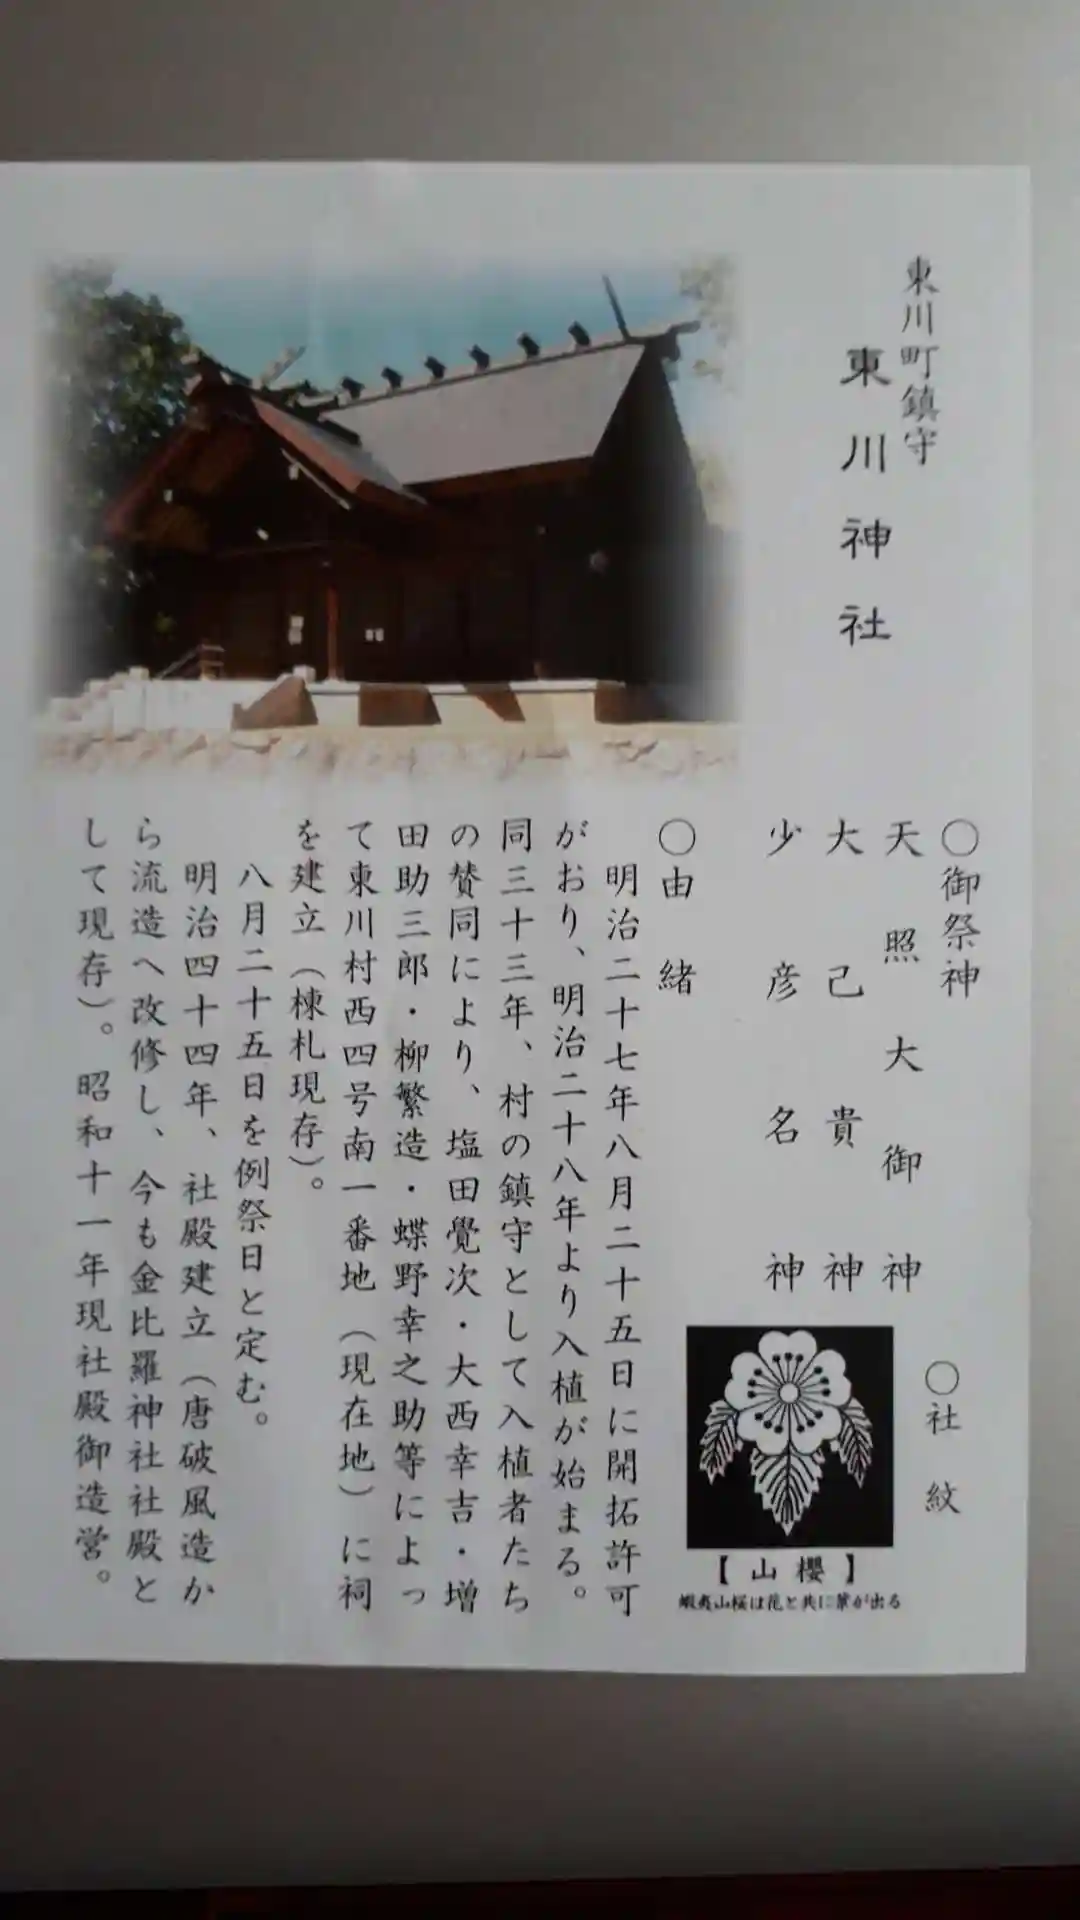 東川町鎮守
東川神社
〇御祭神
天照大御神
大己貴神
少彦名神
〇社紋
【山櫻】
蝦夷山桜は花と共に葉が出る
〇由緒
明治二十七年八月二十五日に開拓許可
がおり、明治二十八年より入植が始まる。
同三十三年、村の鎮守として入植者たち
の賛同により、塩田覺次・大西幸吉・増
田助三郎・柳繁造・蝶野幸之助等によっ
て東川村西四号南一番地（現在地）に祠
を建立（棟札現存）。
八月二十五日を例祭日と定む。
明治四十四年、社殿建立（唐破風造か
ら流造へ改修し、今も金比羅神社社殿と
して現存）。昭和十一年現社殿御造営。